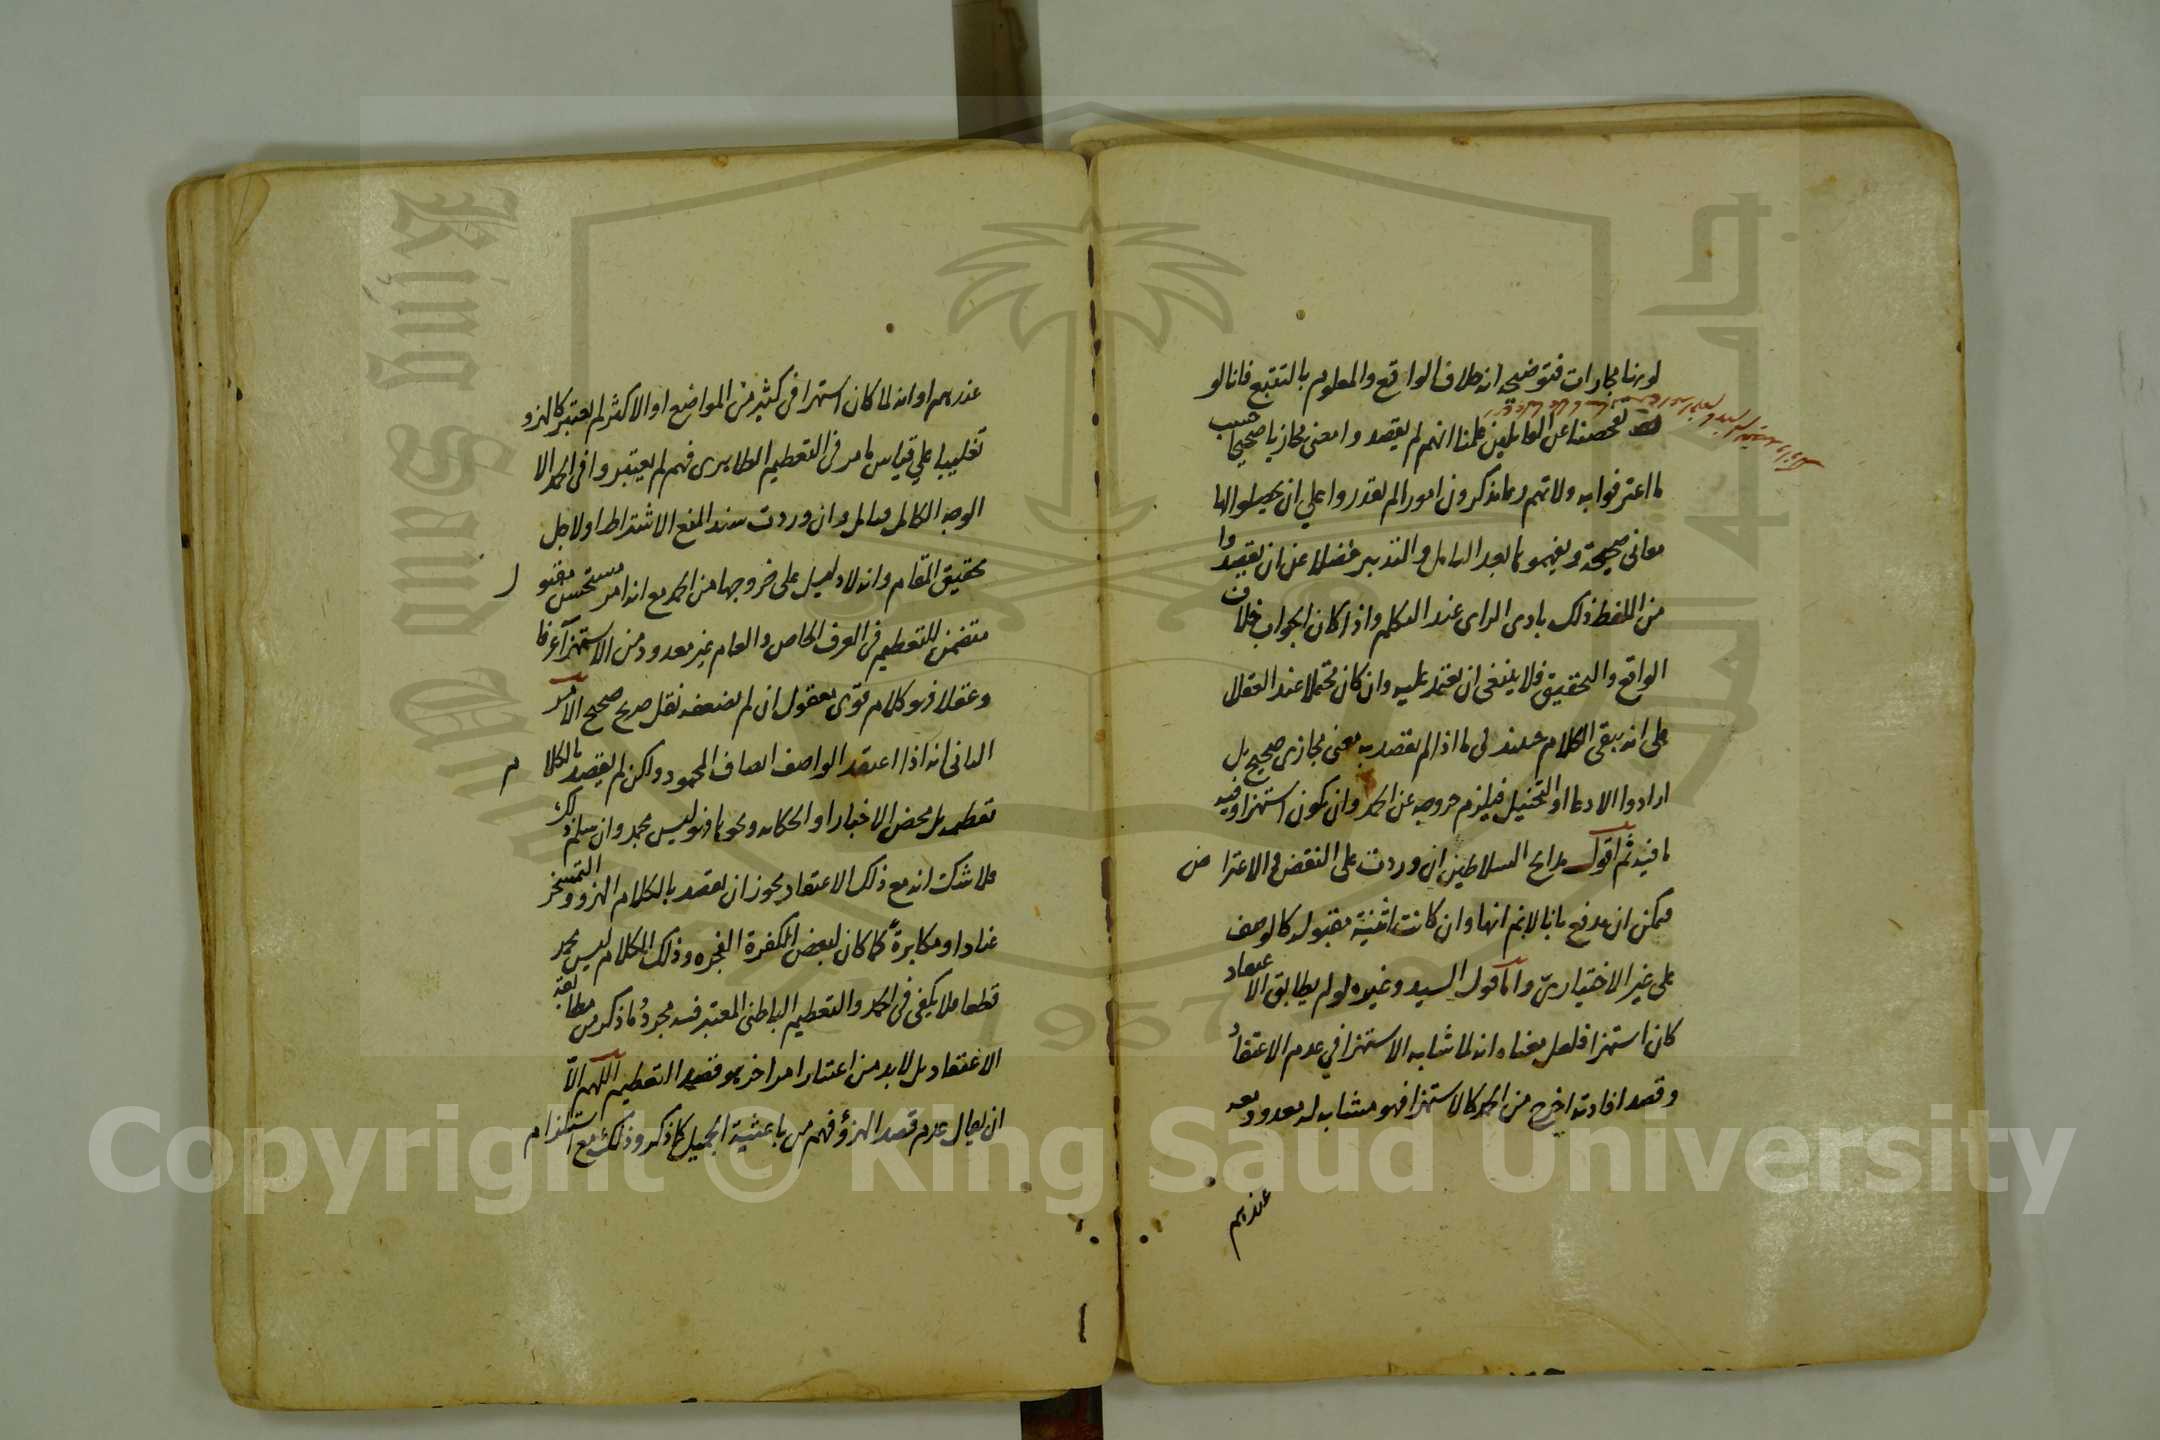 لو بها مجازات فتوضيحه انه خلاف الواقع والمعلوم بالتتبع فانا لو
تفحصنا عن القائلين علمنا انهم لم يقصدوا معنى مجازيا صحيحا حسب
ما اعترفوا به ولانهم ربما يذكرون امورا لم يقدروا على ان يحيلوا لها
معاني صحيحة ويفهموها بعد التامل والتدبير فضلا عن ان يقصدوا
من اللفظ ذلك بادى الراى عند التكلم واذا كان الجواب خلاف
الواقع والتحقيق فلا ينبغي ان يعتمد عليه وان كان محتملا عند العقل
على انه يبقى الكلام عند لى ما اذا لم يقصد به معنى مجازى صحيح بل
ارادوا الادعا او التخييل فيلزم خروجه عن الحمد وان يكون استهزا وفيه
ما فيه ثم اقول مدايح السلاطين ان وردت على النقض والاعتراض
فيمكن ان يدفع بانا لانم انها وان كانت اثنية مقبولة كالوصف
على غير الاختيارى واما قول السيد وغيره لو لم يطابق الاعتقاد
كان استهزا فلعل معناه انه لما شابه الاستهزا في عدم الاعتقاد
وقصد افادته اخرج من الحمد كالاستهزا فهو مشابه له معدود معه
عندهم
عندهم او انه لما كان استهزا في كثير من المواضع او الاكثر لم يعتبر كالهزو
تغليبا على قياس ما مر في التعظيم الظاهرى فهم لم يعتبروا في الحمد الا
الوجه الكامل فتامل وان وردت سند المنع الاشتراط او لاجل
تحقيق المقام وانه لا دليل على خروجها من الحمد مع انه امر مستحسن مقبول
متضمن للتعظيم في العرف الخاص والعام غير معدود من الاستهزآ عرفا
وعقلا فهو كلام قوى معقول ان لم يضعفه نقل صريح صحيح الامر
الثانى انه اذا اعتقد الواصف اتصاف المحمود ولكن لم يقصد بالكلام
تعظيمه بل محض الاخبار او الحكاية ونحوها فهو ليس بحمد وان سلم ذلك
فلا شك انه مع ذلك الاعتقاد يجوز ان يقصد بالكلام الهزو والتمسخر
عنادا ومكابرة كما كان لبعض الكفرة الفجره وذلك الكلام ليس بحمد
قطعا فلا يكفى في الحمد والتعظيم الباطنى المعتبر فيه مجرد ما ذكر من مطابقة
الاعتقاد بل لا بد من اعتبار امر اخر هو قصد التعظيم اللهم الا
ان يقال عدم قصد الهزؤ فهم من باعثية الجميل كما ذكر وذلك مع استلزام
Copyright © King Saud University
King Saud University
جامعة الملك سعود
1957